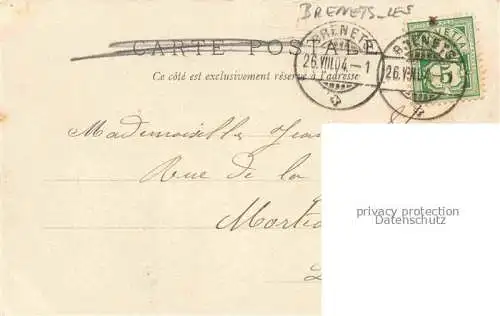 BRENETS-LES
CARTE POSTALE
Ce côté est exclusivement réservé à l'adresse
BRENETS
26.VIII.04.-1
BRENETS
26.VIII.04
HELVETIA
5
Mademoiselle Jea
Rue de la
Morte
privacy protection
samlerCards